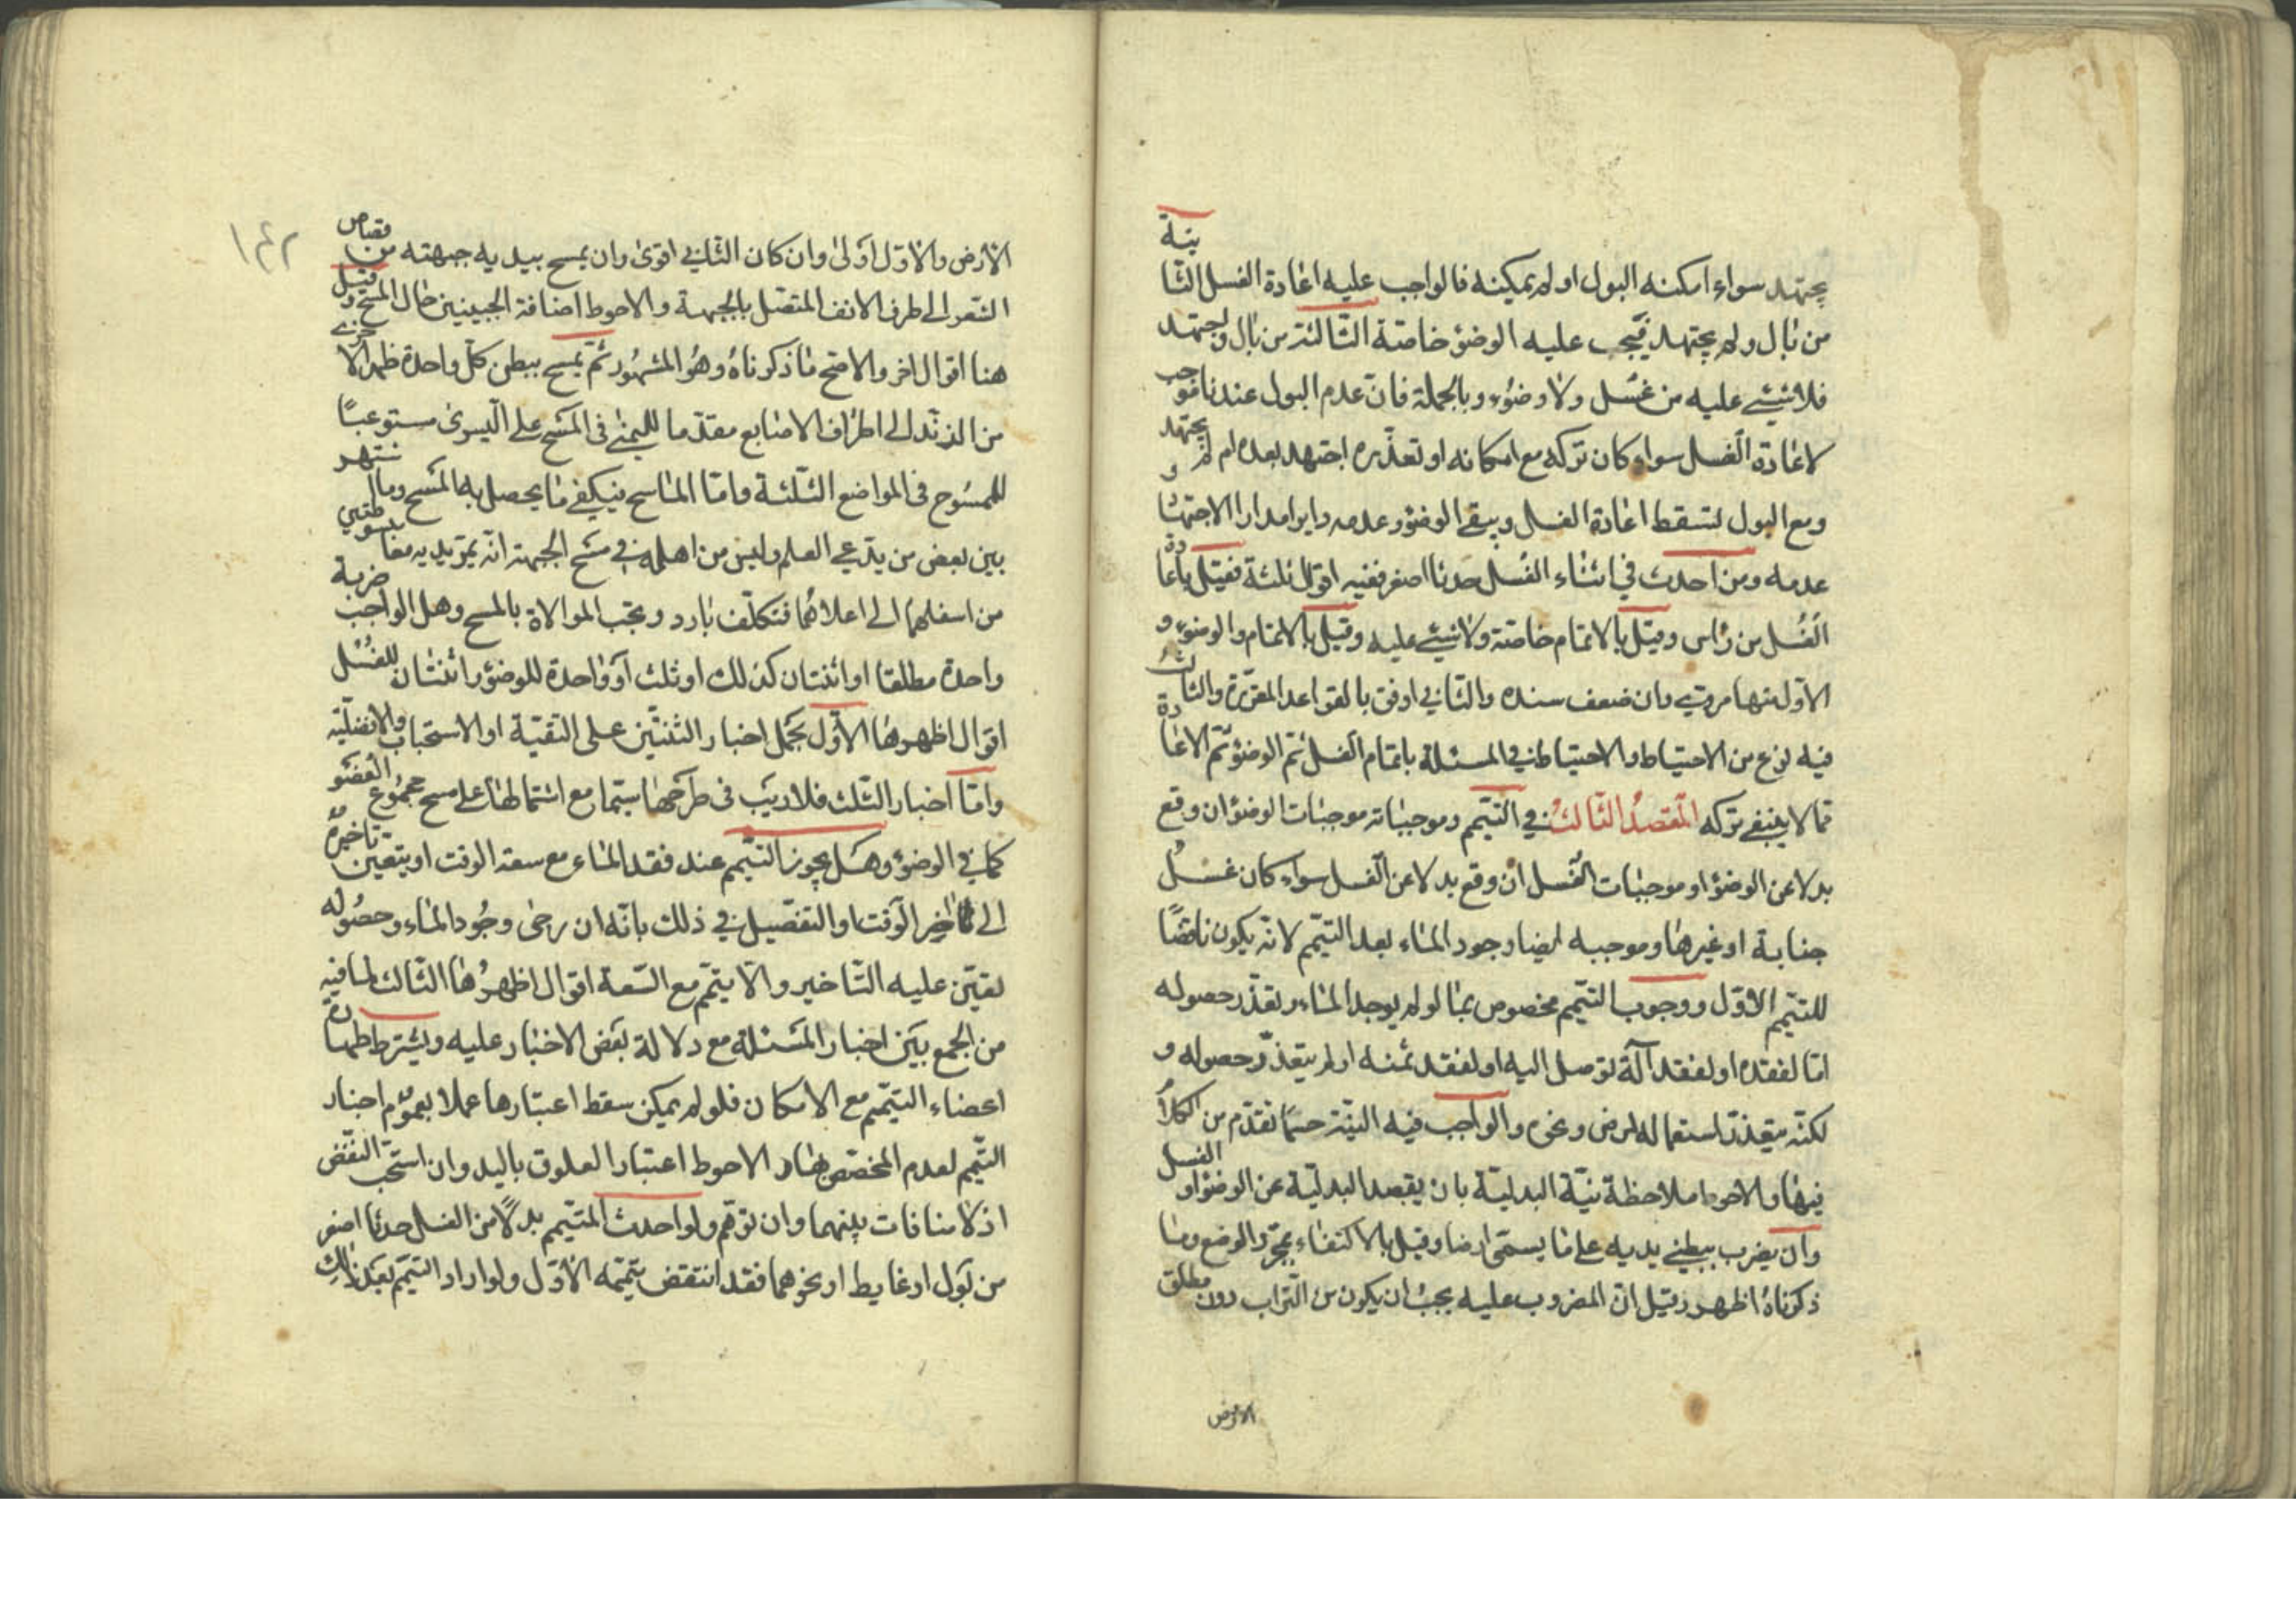 يجتهد سواء امكنه البول او لم يمكينه فالواجب عليه اعادة الغسل الثانية
من بال ولم يجتهد فيجب عليه الوضوء خاصّة الثّالثة من بال واجتهد
فلا شيئ عليه من غسل ولا وضوء وبالجملة فانّ عدم البول عندنا موجب
لاعادة الغسل سواء كان تركه مع امكانه او تعذّره اجتهد بعده ام لم يجتهد و
ومع البول تسقط اعادة الغسل ويبقى الوضوء وعدمه دايرا مدار الاجتهاد
عدمه ومن احدث في اثناء الغسل حدثا اصغر ففيه اقوال ثلثة فقيل باعادة
الغُسل من رأس وقيل بالاتمام خاصّة ولا شيئ عليه وقيل بالاتمام والوضوء و
الاوّل منها مرويّ وان ضعف سنده والثّاني اوفق بالقواعد المقرّرة والثالث
فيه نوع من الاحتياط والاحتياط في المسئلة باتمام الغسل ثمّ الوضوء ثمّ الاعادة
ممّا لا ينبغي تركه المقصد الثّالث في التيمّم وموجباته موجبات الوضوء ان وقع
بدلا عن الوضوء او موجبات الغُسل ان وقع بدلا عن الغسل سواء كان غسل
جنابة او غيرها وموجبه ايضا وجود الماء بعد التيمّم لانّه يكون ناقضًا
للتيمّم الاوّل ووجوب التيمّم مخصوص بما لو لم يوجد الماء وتعذّر حصوله
امّا لفقده او لفقد آلة توصل اليه او لفقد ثمنه او لم يتعذّر حصوله و
لكنّه يتعذّر استعماله لمرض ونحوه والواجب فيه النيّة حسبما تقدّم من الكلام
فيها والاحوط ملاحظة نيّة البدليّة بان يقصد البدليّة عن الوضوء او الغسل
وان يضرب ببطني يديه على ما يسمّى ارضا وقيل بالاكتفاء بمجرّد الوضع وما
ذكرناه اظهر وقيل انّ المضروب عليه يجب ان يكون من التّراب دون مطلق
الارض
١٤٢
الارض والاوّل اولى وان كان الثّاني اقوى وان يمسح بيديه جبهته من قصاص
الشعر الى طرف الانف المتّصل بالجبهة والاحوط اضافة الجبينين حال المسح وقيل
هنا اقوال اخر والاصحّ ما ذكرناه وهو المشهور ثمّ يمسح ببطن كلّ واحدة ظهر الاخرى
من الزند الى اطراف الاصابع مقدّما لليمنى في المسح على اليسرى مستوعبًا
للممسوح في المواضع الثلثة وامّا الماسح فيكفي ما يحصل به المسح وما اشتهر
بين بعض من يدّعي العلم وليس من اهله في مسح الجبهة انّه يمرّ يديه معا
من اسفلهما الى اعلاهما فتكلّف بارد وتجب الموالاة بالمسح وهل الواجب ضربة
واحدة مطلقا او اثنتان كذلك او ثلث او واحدة للوضوء واثنتان للغسل
اقوال اظهرها الاوّل بحمل اخبار الثنتين على التقيّة او الاستحباب والافضليّة
وامّا اخبار الثلث فلا ريب في طرحها سيّما مع اشتمالها على مسح مجموع العضو
كما في الوضوء وهل يجوز التيمّم عند فقد الماء مع سعة الوقت او يتعين تاخيره
الى اخر الوقت او التفصيل في ذلك بانّه ان رجى وجود الماء وحصوله
تعيّن عليه التّاخير والاّ يتمّم مع السّعة اقوال اظهرها الثّالث لما فيه
من الجمع بين اخبار المسئلة مع دلالة بعض الاخبار عليه ويشترط طهارة
اعضاء التيمّم مع الامكان فلو لم يمكن سقط اعتبارها عملا بعموم اخبار
التيمّم لعدم المخصّص لها والاحوط اعتبار العلوق باليد وان استحبّ النّفض
اذ لا منافات بينهما وان توهّم ولو احدث المتيمّم بدلاً من الغسل حدثا اصغر
من بول او غايط او نحوهما فقد انتقض تيمّمه الاوّل ولو اراد التيمّم بعد ذلك